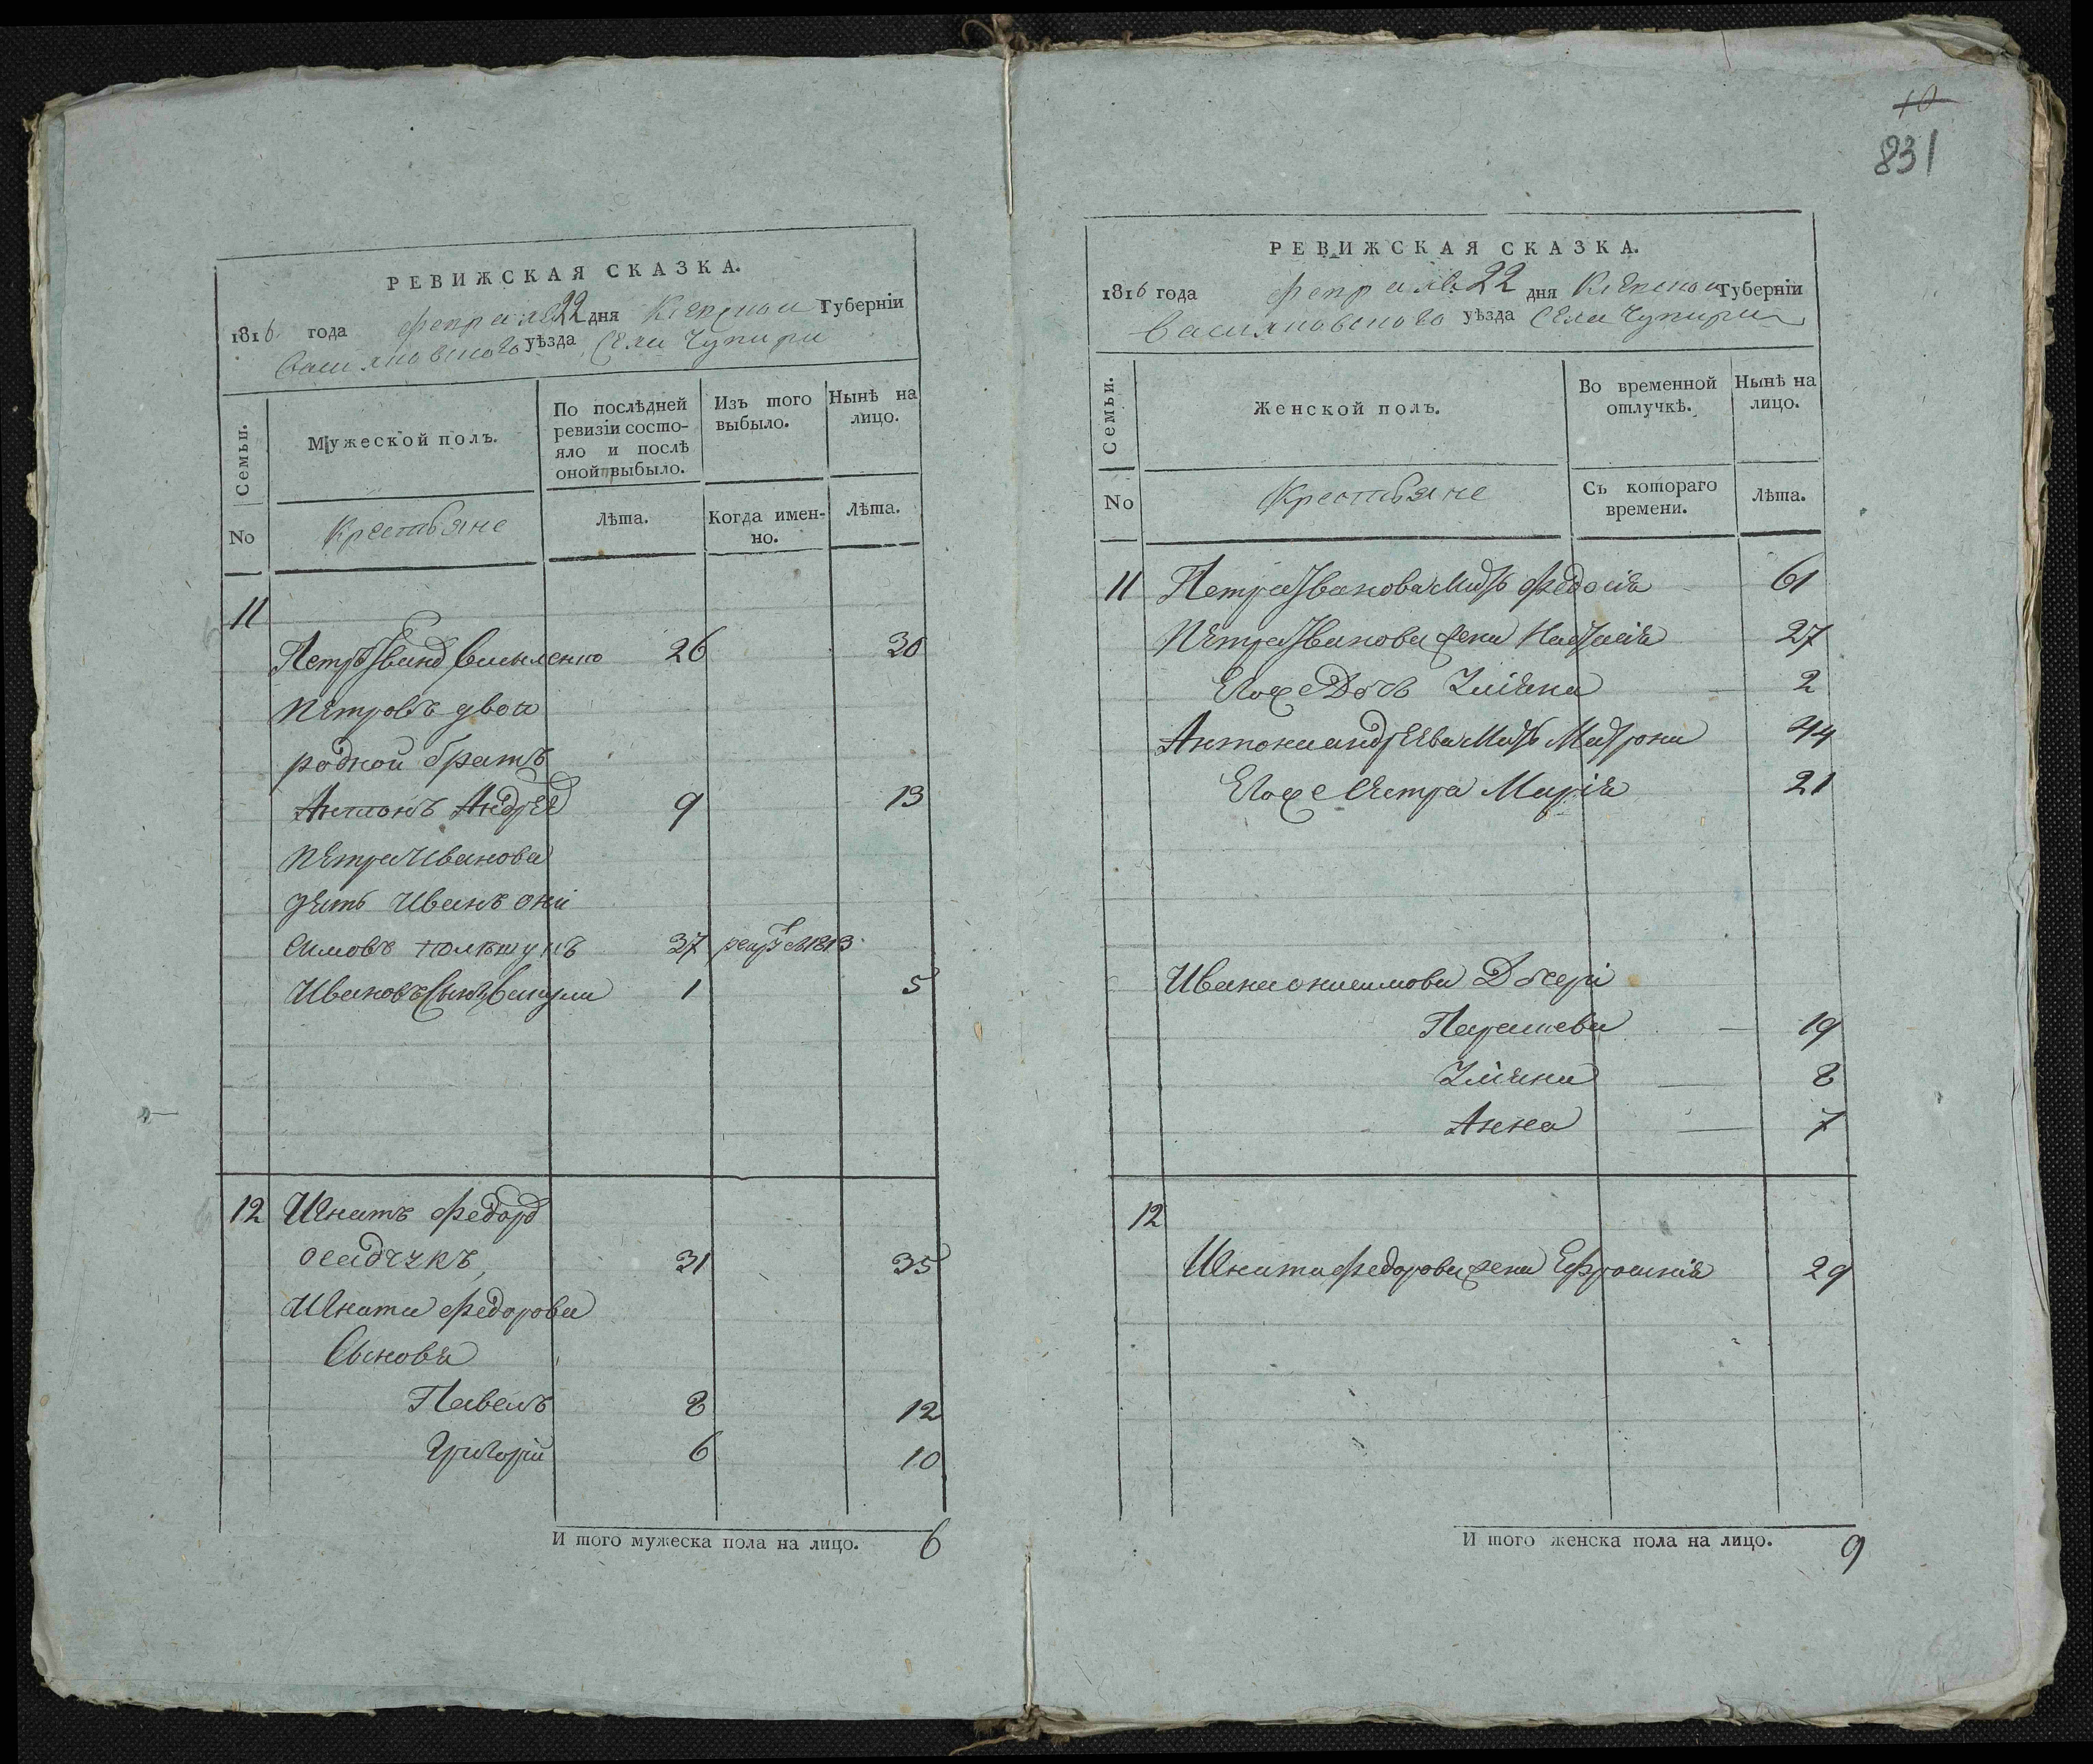 РЕВИЖСКАЯ СКАЗКА.
1816 года февраля 22 дня Киевской Губерніи
Василковского уѣзда Села Чупири
Семьи.
Мужеской полъ.
По послѣдней
ревизіи состо-
яло и послѣ
оной выбыло.
Изъ того
выбыло.
Нынѣ на
лицо.
No
Крестьяне
Лѣта.
Когда имен-
но.
Лѣта.
11
Петръ Иванов 26 30
Петровъ двою
родной братъ
Антонъ Андреев 9 13
Петра Иванова
зять Иванъ Они
симовъ 37 1813
Ивановъ Сынъ Вакула 1 5
12 Игнатъ Федоров
осадчукъ 31 35
Игната Федорова
Сыновя
Павелъ 8 12
Григорій 6 10
И того мужеска пола на лицо. 6
10
831
РЕВИЖСКАЯ СКАЗКА.
1816 года февраля 22 дня Киевской Губерніи
Василковского уѣзда Села Чупири
Семьи.
Женской полъ.
Во временной
отлучкѣ.
Нынѣ на
лицо.
No
Крестьяне
Съ котораго
времени.
Лѣта.
11 Петра Иванова Мать Федосія 61
Петра Иванова жена Настасія 27
Его же Дочь Уліяна 2
Антона андреева Мать Матрона 44
Его же Сестра Марія 21
Ивана онисимова Дочери
Параскева 19
Уліяна 8
Анна 7
12
Игната Федорова жена Ефросинія 29
И того женска пола на лицо. 9